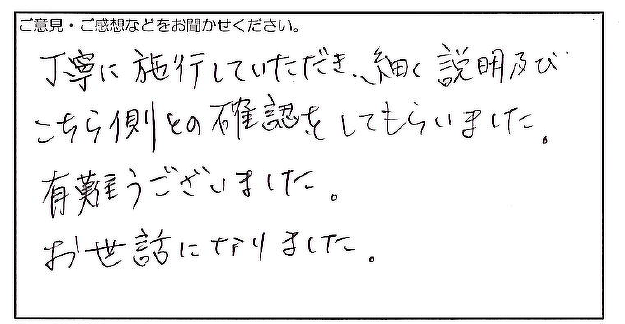 ご意見・ご感想などをお聞かせください。
丁寧に施行していただき、細く説明及び
こちら側との確認をしてもらいました。
有難うございました。
お世話になりました。